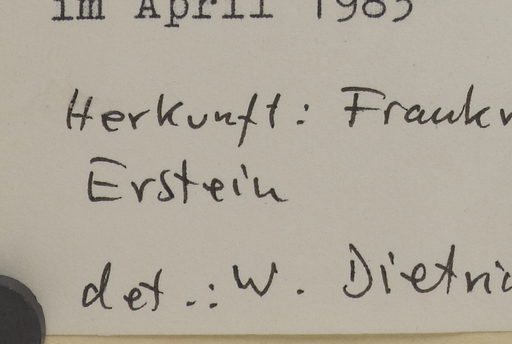 im April 1985
Herkunft: Frankr
Erstein
det.: W. Dietric